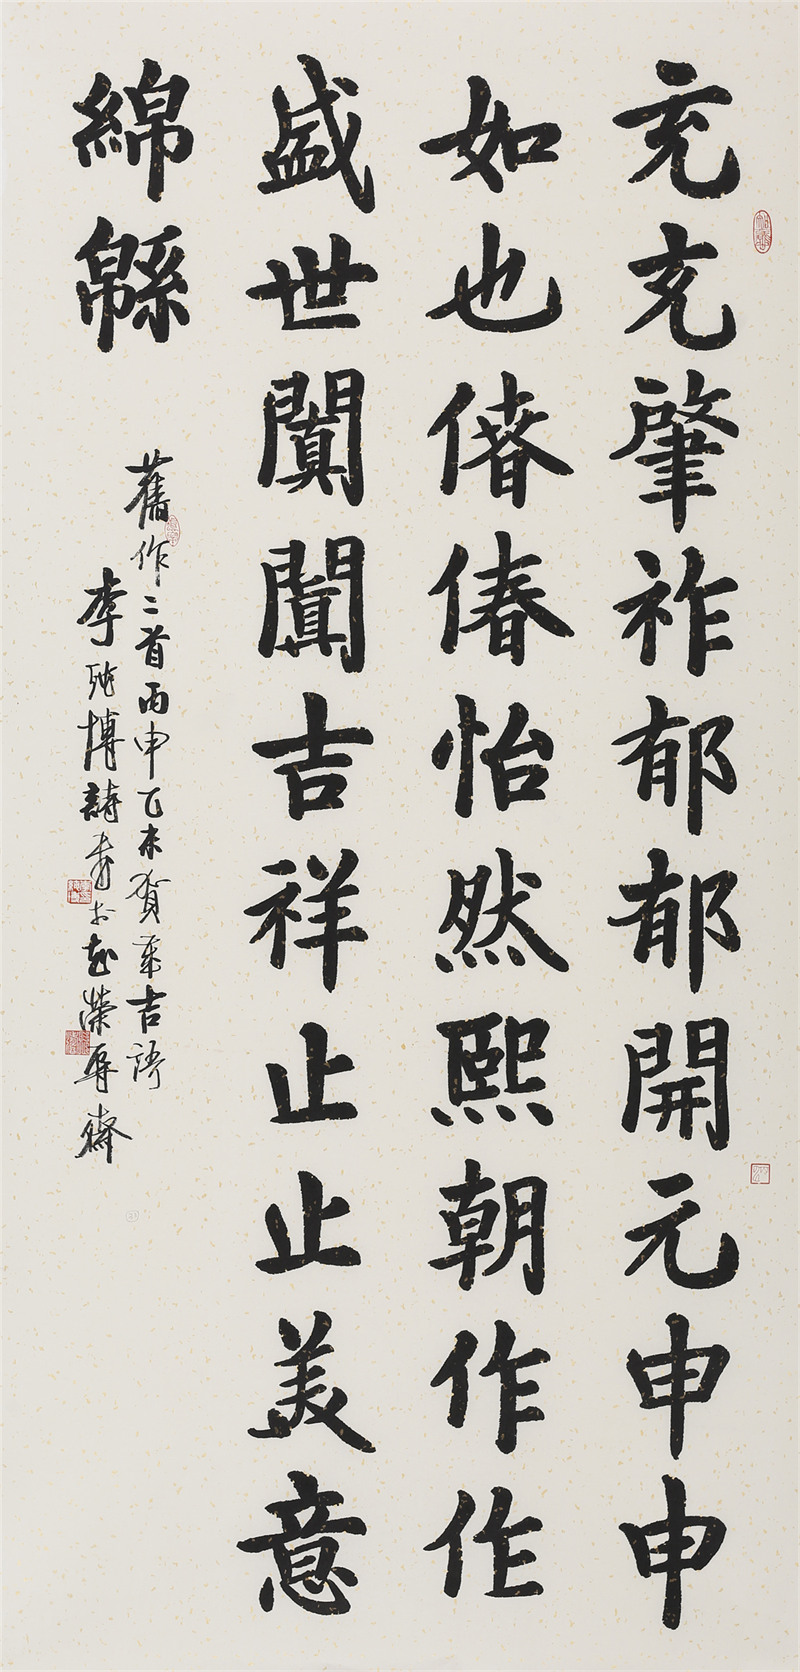 充充肇祚郁郁開元申申
如也偆偆怡然熙朝作作
盛世闐闐吉祥止止美意
綿緜
舊作二首丙申乙未賀年吉語
李 博詩書於 榮 齋